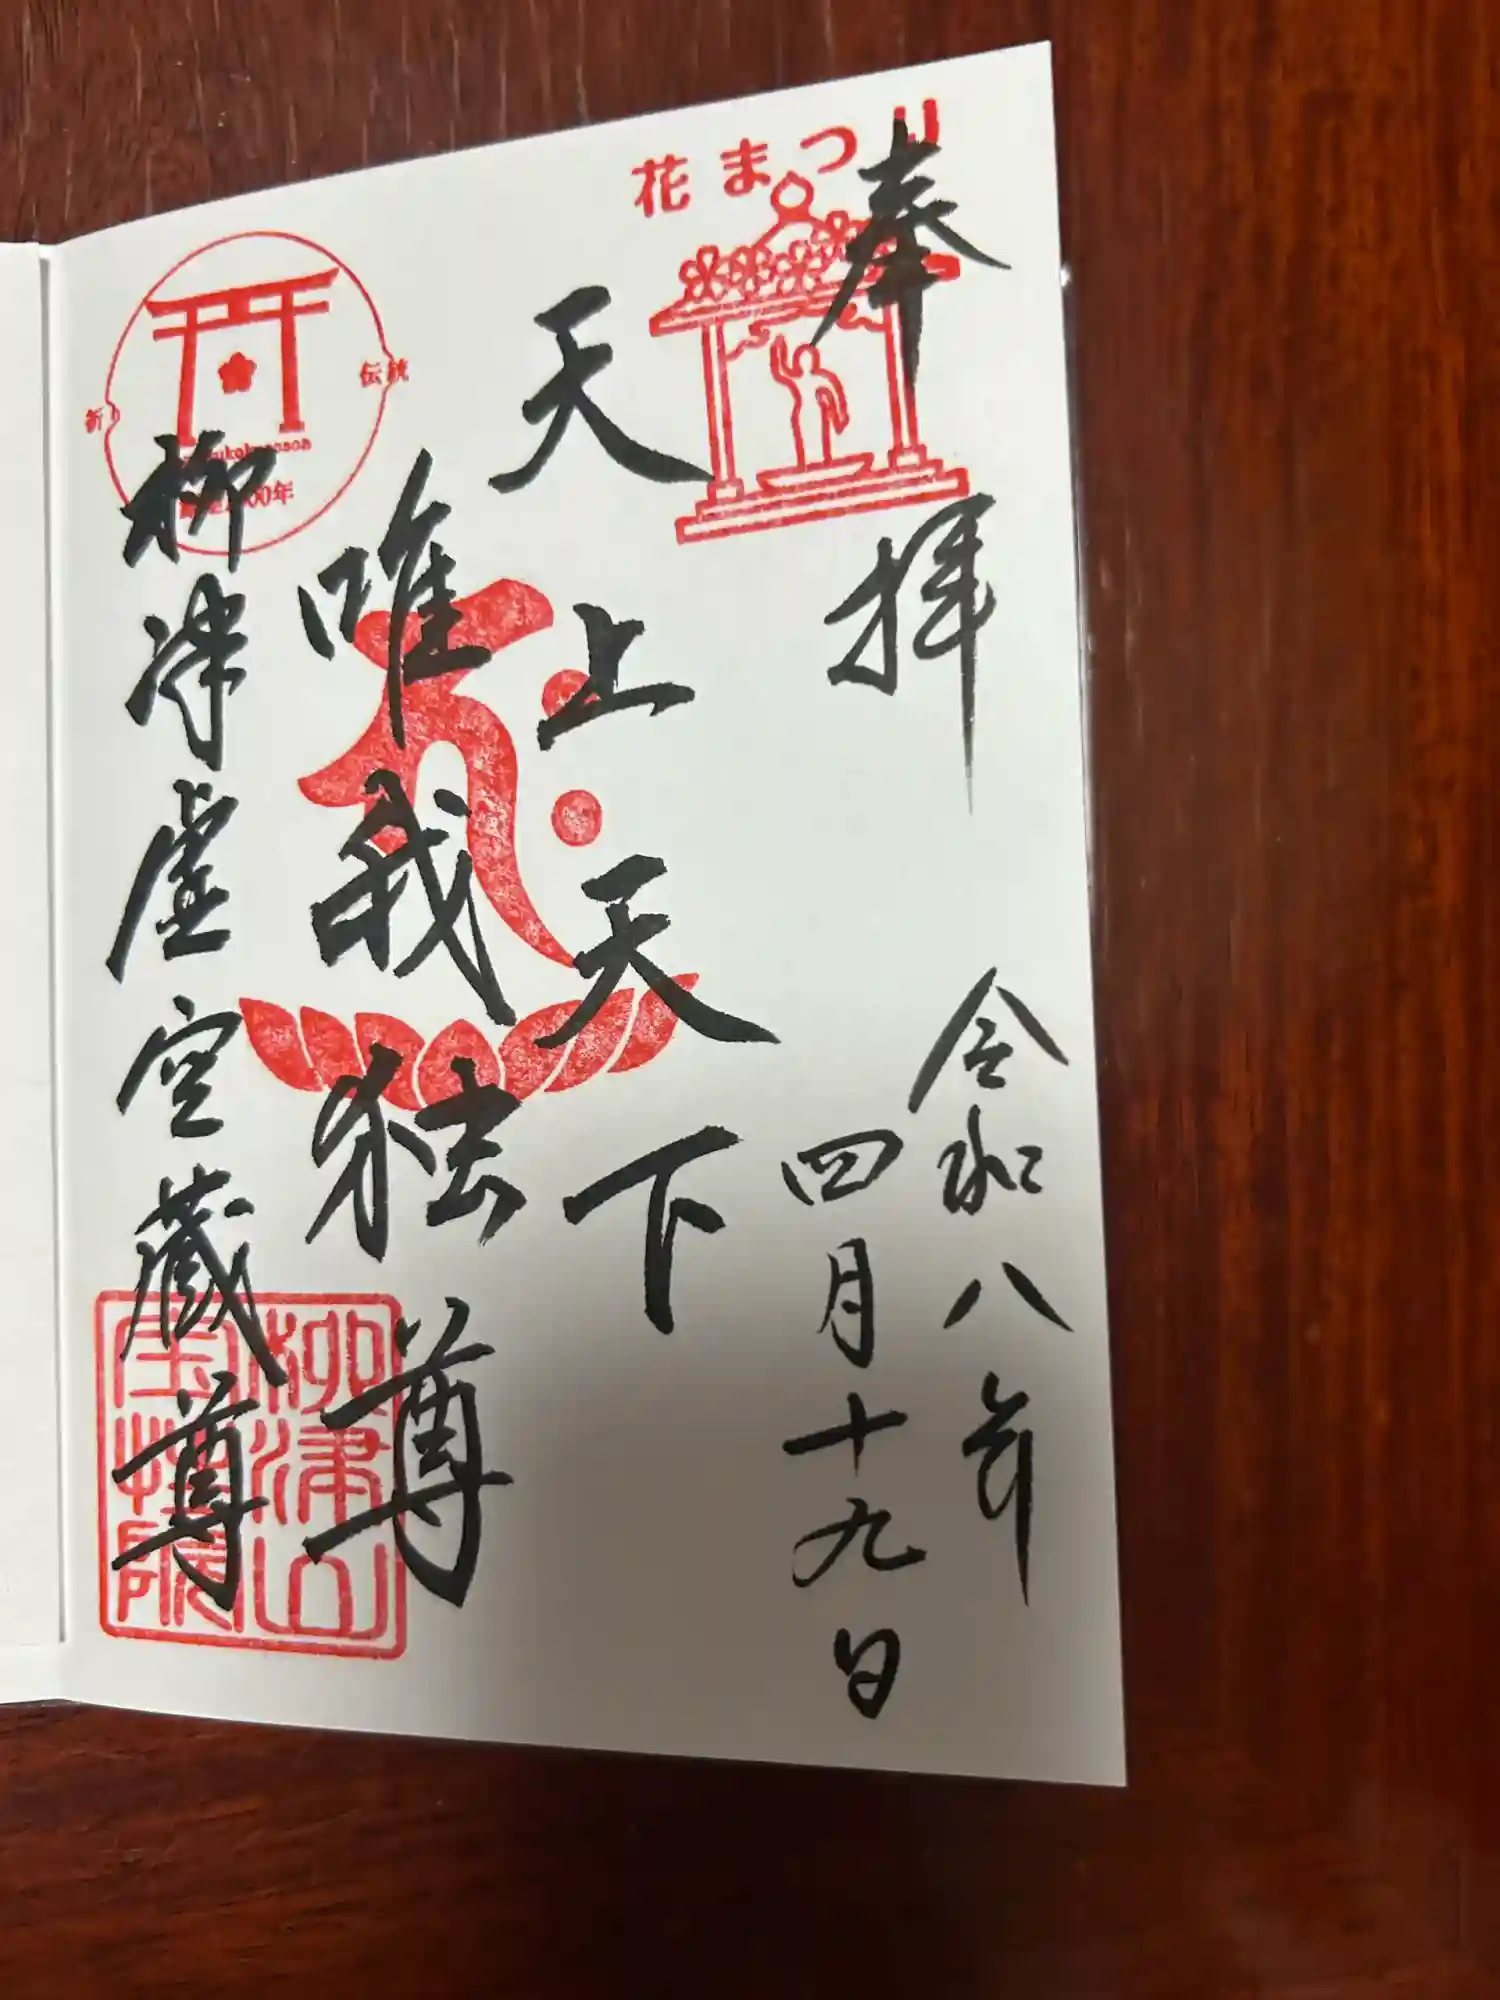 花まつり
奉拝
令和八年
四月十九日
天上天下
唯我独尊
柳津虚空蔵尊
祈り
伝統
00年
柳津山
宝性院